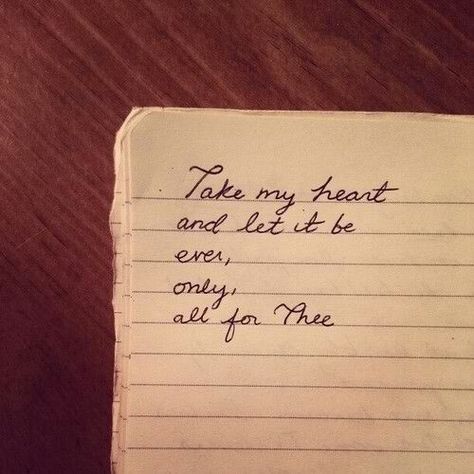 Take my heart
and let it be
ever,
only,
all for Thee